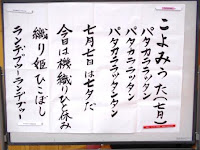 こよみうた(七月)
パタカラランタン
パタカラランタン
パタカラランタン
七月七日は七夕だ
今日は機織りひと休み
織り姫ひこぼし
ランデブーランデブー